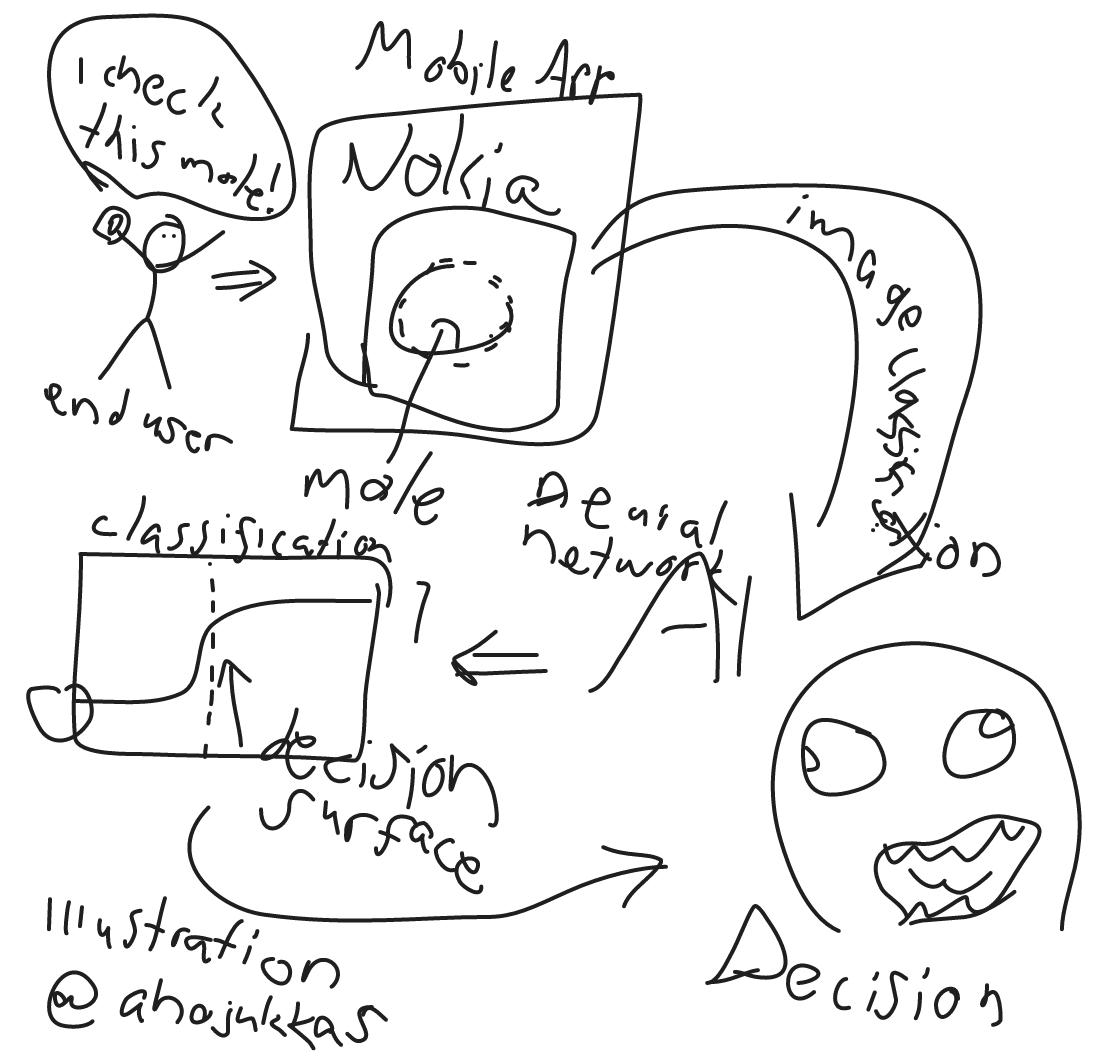 I check
this mole!
Mobile App
Nokia
end user
mole
image classification
neural
network
AI
classification
1
decision
surface
Decision
Illustration
@ahojukkas